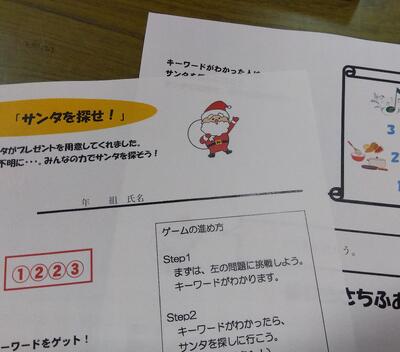 「サンタを探せ！」
タがプレゼントを用意してくれました。
不明に・・・。みんなの力でサンタを探そう！
年　組　氏名
①②②③
ーワードをゲット！
ゲームの進め方
Step1
まずは、左の問題に挑戦しよう。
キーワードがわかります。
Step2
キーワードがわかったら、
サンタを探しに行こう。
キーワードがわかった
サンタ
3
2
う。
さちふ